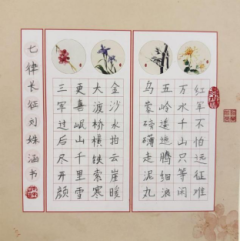 红军不怕远征难
万水千山只等闲
五岭逶迤腾细浪
乌蒙磅礴走泥丸
金沙水拍云崖暖
大渡桥横铁索寒
更喜岷山千里雪
三军过后尽开颜
七律长征刘姝涵书